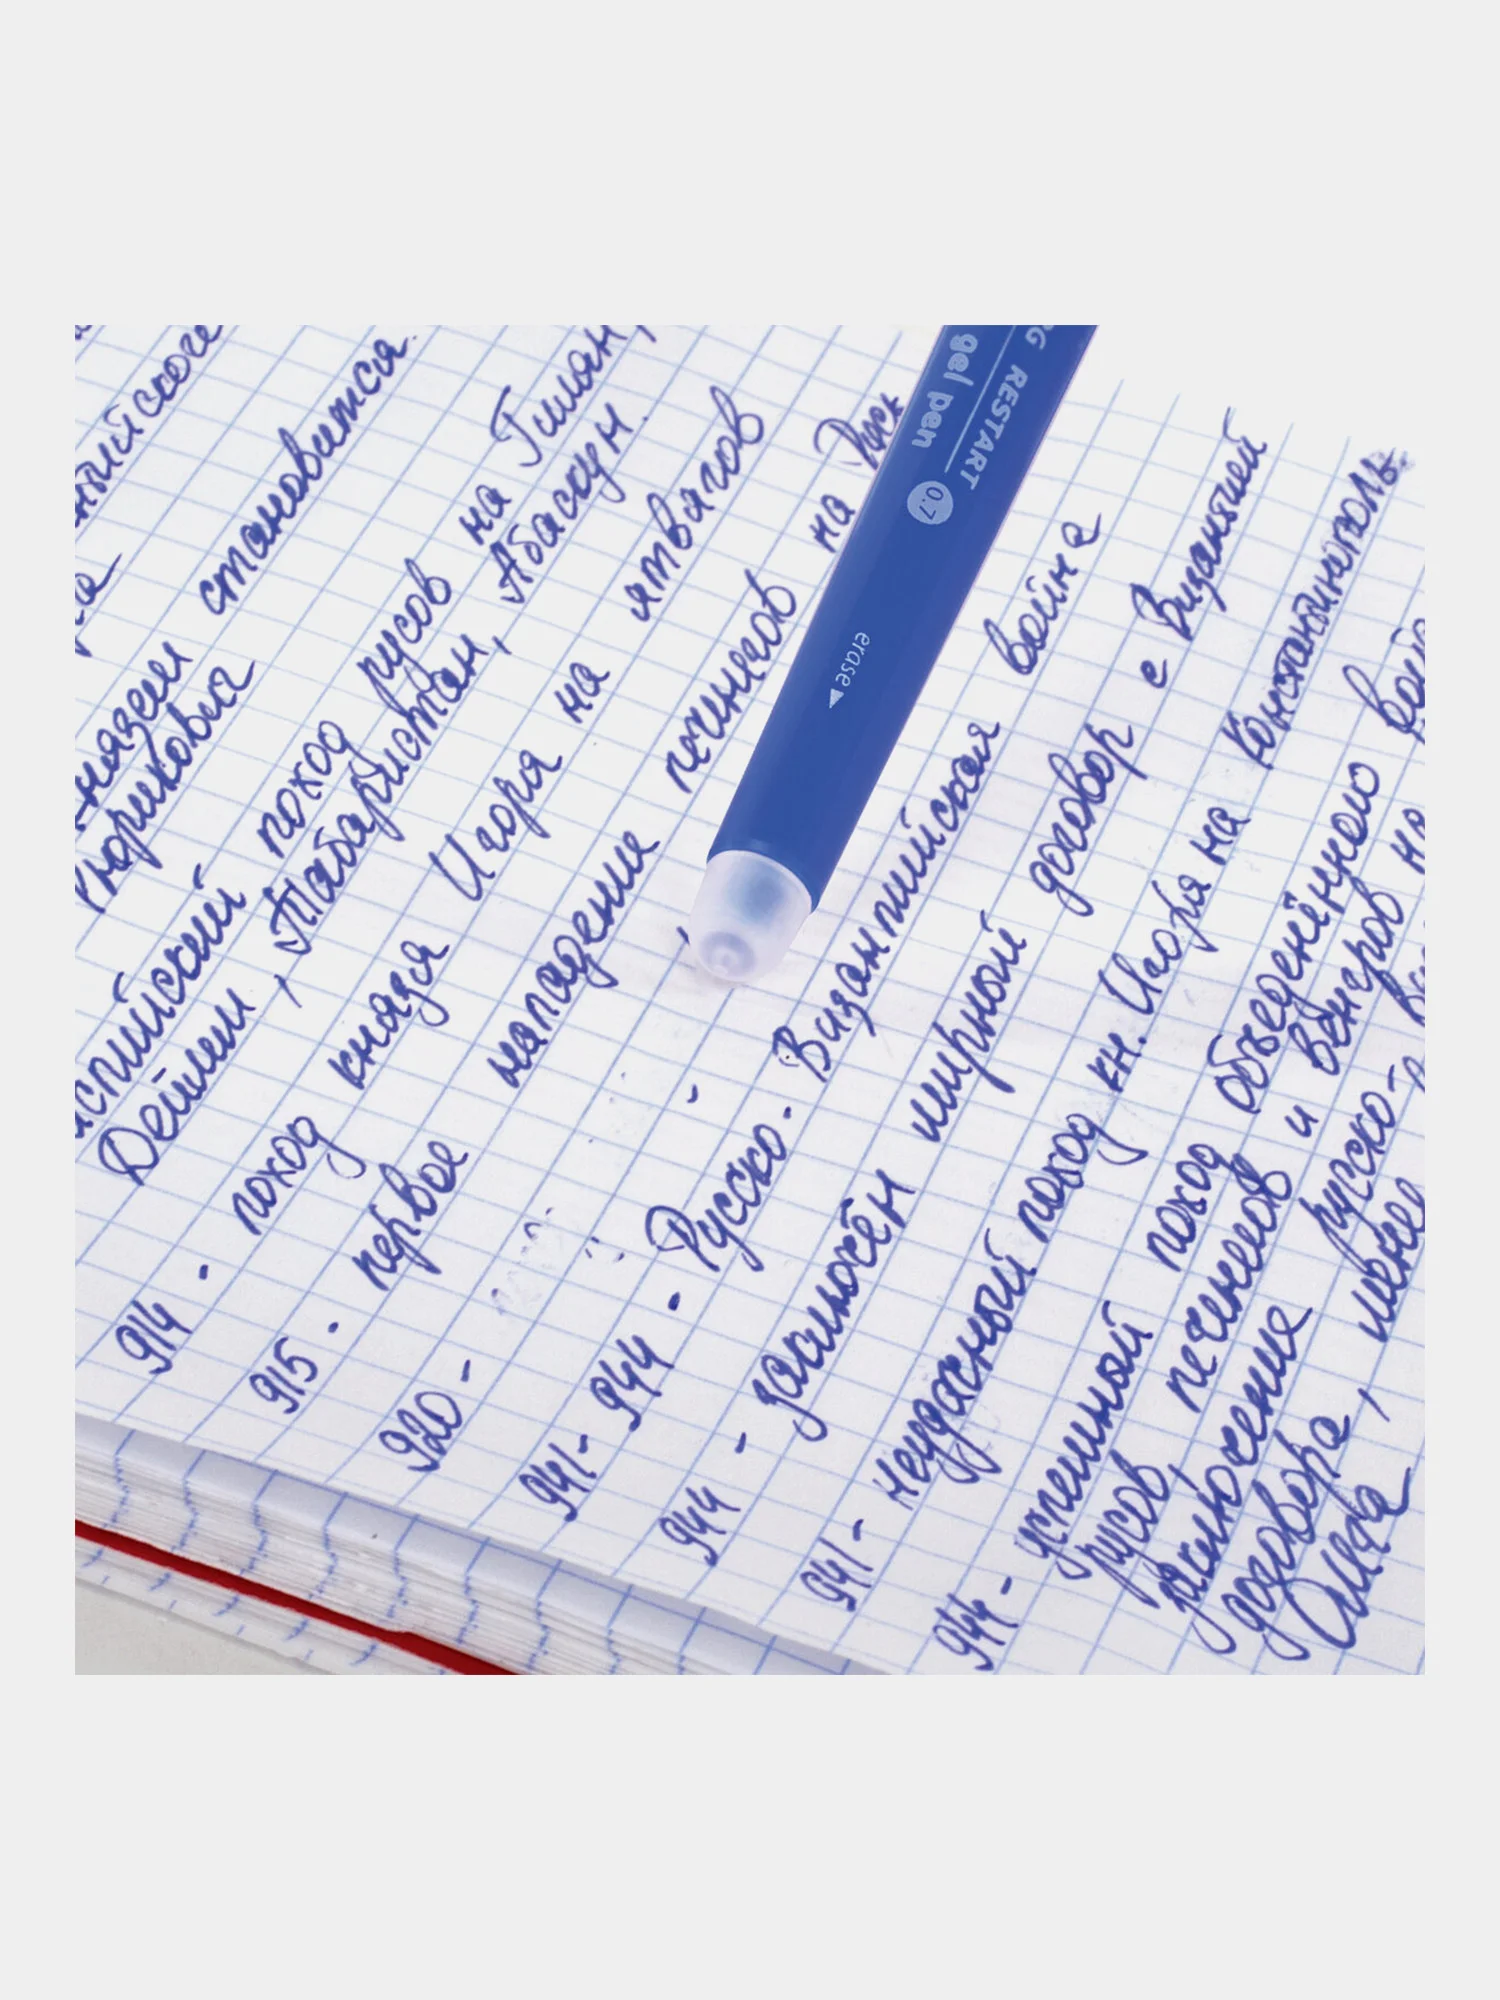 становится
Рюриковна
поход русов на Гилян,
Дейлем, Табаристан, Абаскун.
914 - поход князя Игоря на ятвягов
915 - первое нападение печенегов на
920 -
941 - 944 - Русско - Византийская война
944 - заключён мирный договор с Византией
941 - неудачный поход кн. Игоря на Константинополь.
944 - успешный поход объеденённого
русов, печенегов и венгров на
заключение русско-
договора,
Ольга
RESTART
gel pen 0.7
erase